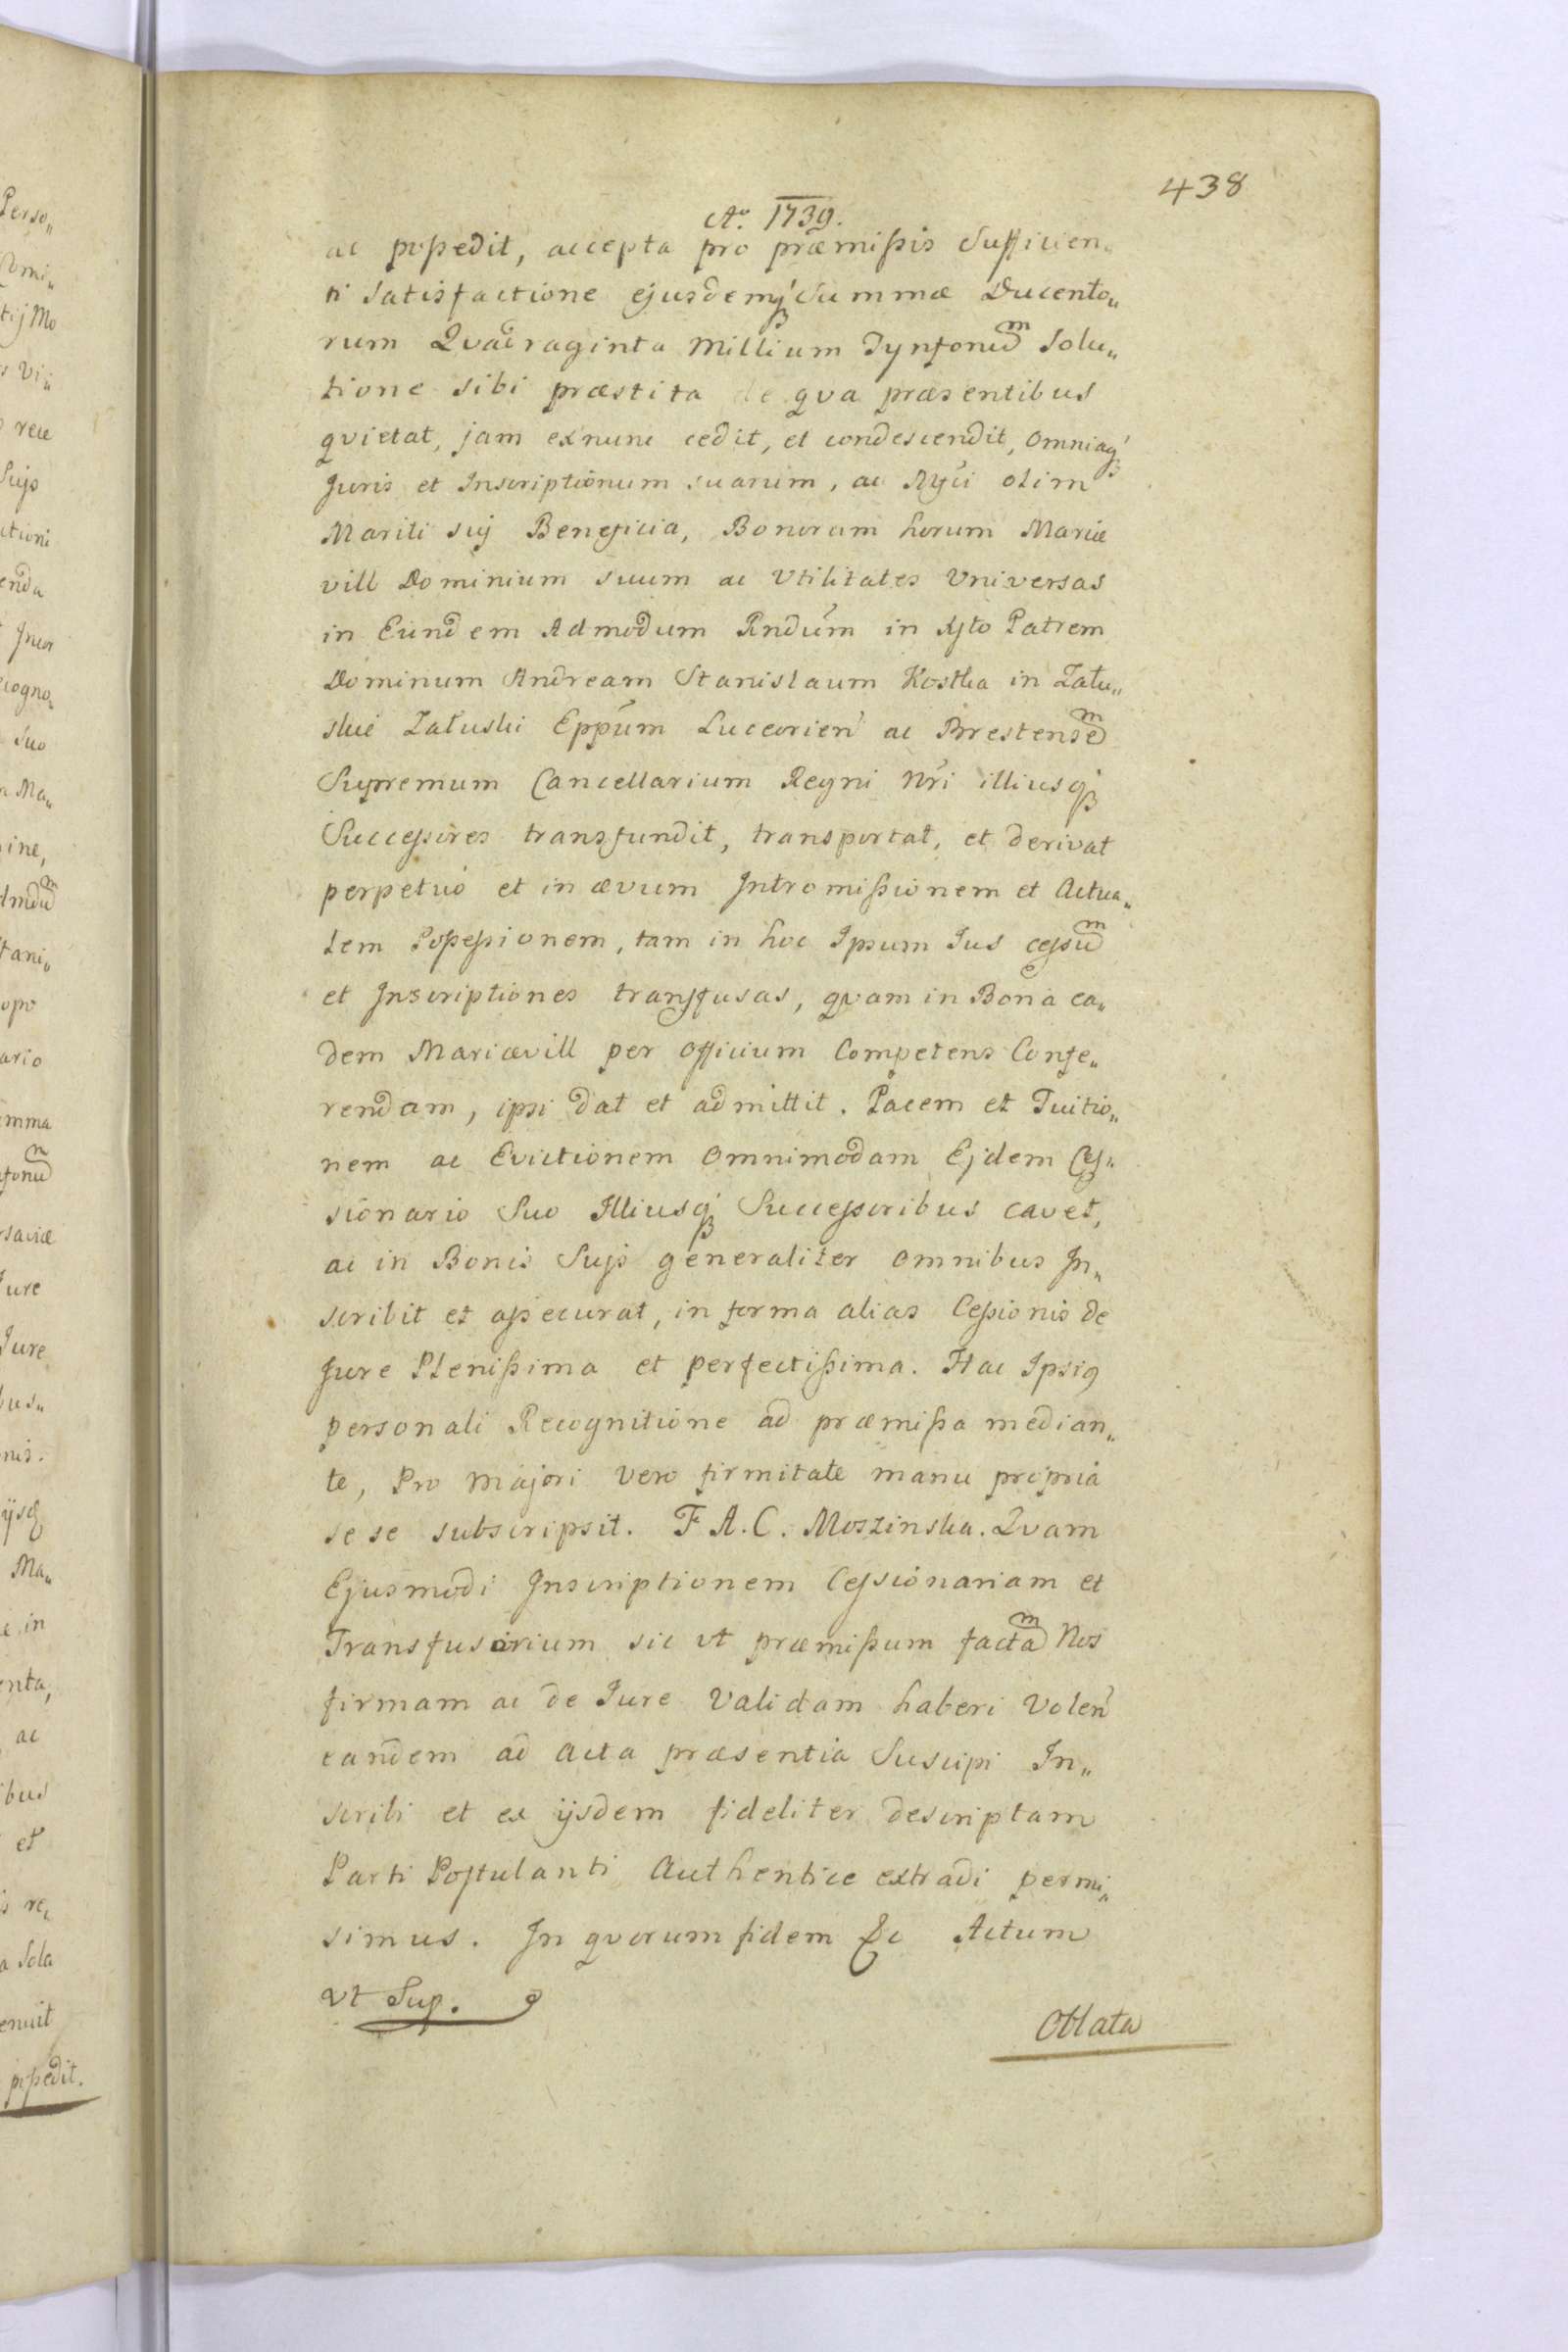 438
Aº. 1739.
ac possedit, accepta pro præmissis Sufficien„
ti Satisfactione ejusdemq́ Summæ Ducento„
rum Qvadraginta Millium Tynfonum Solu„
tione sibi præstita de qva præsentibus
qvietat, jam exnunc cedit, et condescendit, Omniaq́
Juris et Inscriptionum suarum, ac Mgci olim
Mariti suj Beneficia, Bonorum horum Mariæ
vill Dominium suum ac Vtilitates Universas
in Eundem Admodum Rndum in Xto Patrem
Dominum Andream Stanislaum Kostka in Zału„
skie Załuski Eppum Luceorien ac Brestensem
Supremum Cancellarium Regni Nri illiusq́
Successores transfundit, transportat, et derivat
perpetuó et in ævum Intromissionem et Actua„
lem Possessionem, tam in hoc Ipsum Ius cessum
et Inscriptiones transfusas, qvam in Bona ea„
dem Mariævill per Officium Competens Confe„
rendam, ipsi dat et admittit. Pacem et Tuitio„
nem ac Evictionem Omnimodam Ejdem Ces„
sionario Suo Illiusq́ Successoribus cavet,
ac in Bonis Sujs generaliter omnibus In„
scribit et assecurat, in forma alias Cessionis de
Jure Plenissima et perfectissima. Hac Ipsig
personali Recognitione ad præmissa median„
te, Pro Majori vero firmitate manu propria
se se subscripsit. F A. C. Moszinska. Qvam
Ejusmodi Inscriptionem Cessionariam et
Transfusorium sic ut præmissum factam Nos
firmam ac de Iure validam haberi Volen
eandem ad acta præsentia Suscipi In„
scribi et ex ijsdem fideliter descriptam
Parti Postulanti Authentice extradi permi„
simus. In qvorum fidem &c Actum
vt Sup.
Oblata